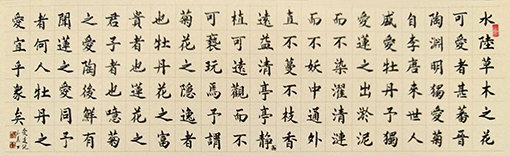 水陸草木之花
可愛者甚蕃晉
陶淵明獨愛菊
自李唐來世人
盛愛牡丹予獨
愛蓮之出淤泥
而不染濯清漣
而不妖中通外
直不蔓不枝香
遠益清亭亭靜
植可遠觀而不
可褻玩焉予謂
菊花之隱逸者
也牡丹花之富
貴者也蓮花之
君子者也噫菊
之愛陶後鮮有
聞蓮之愛同予
者何人牡丹之
愛宜乎眾矣